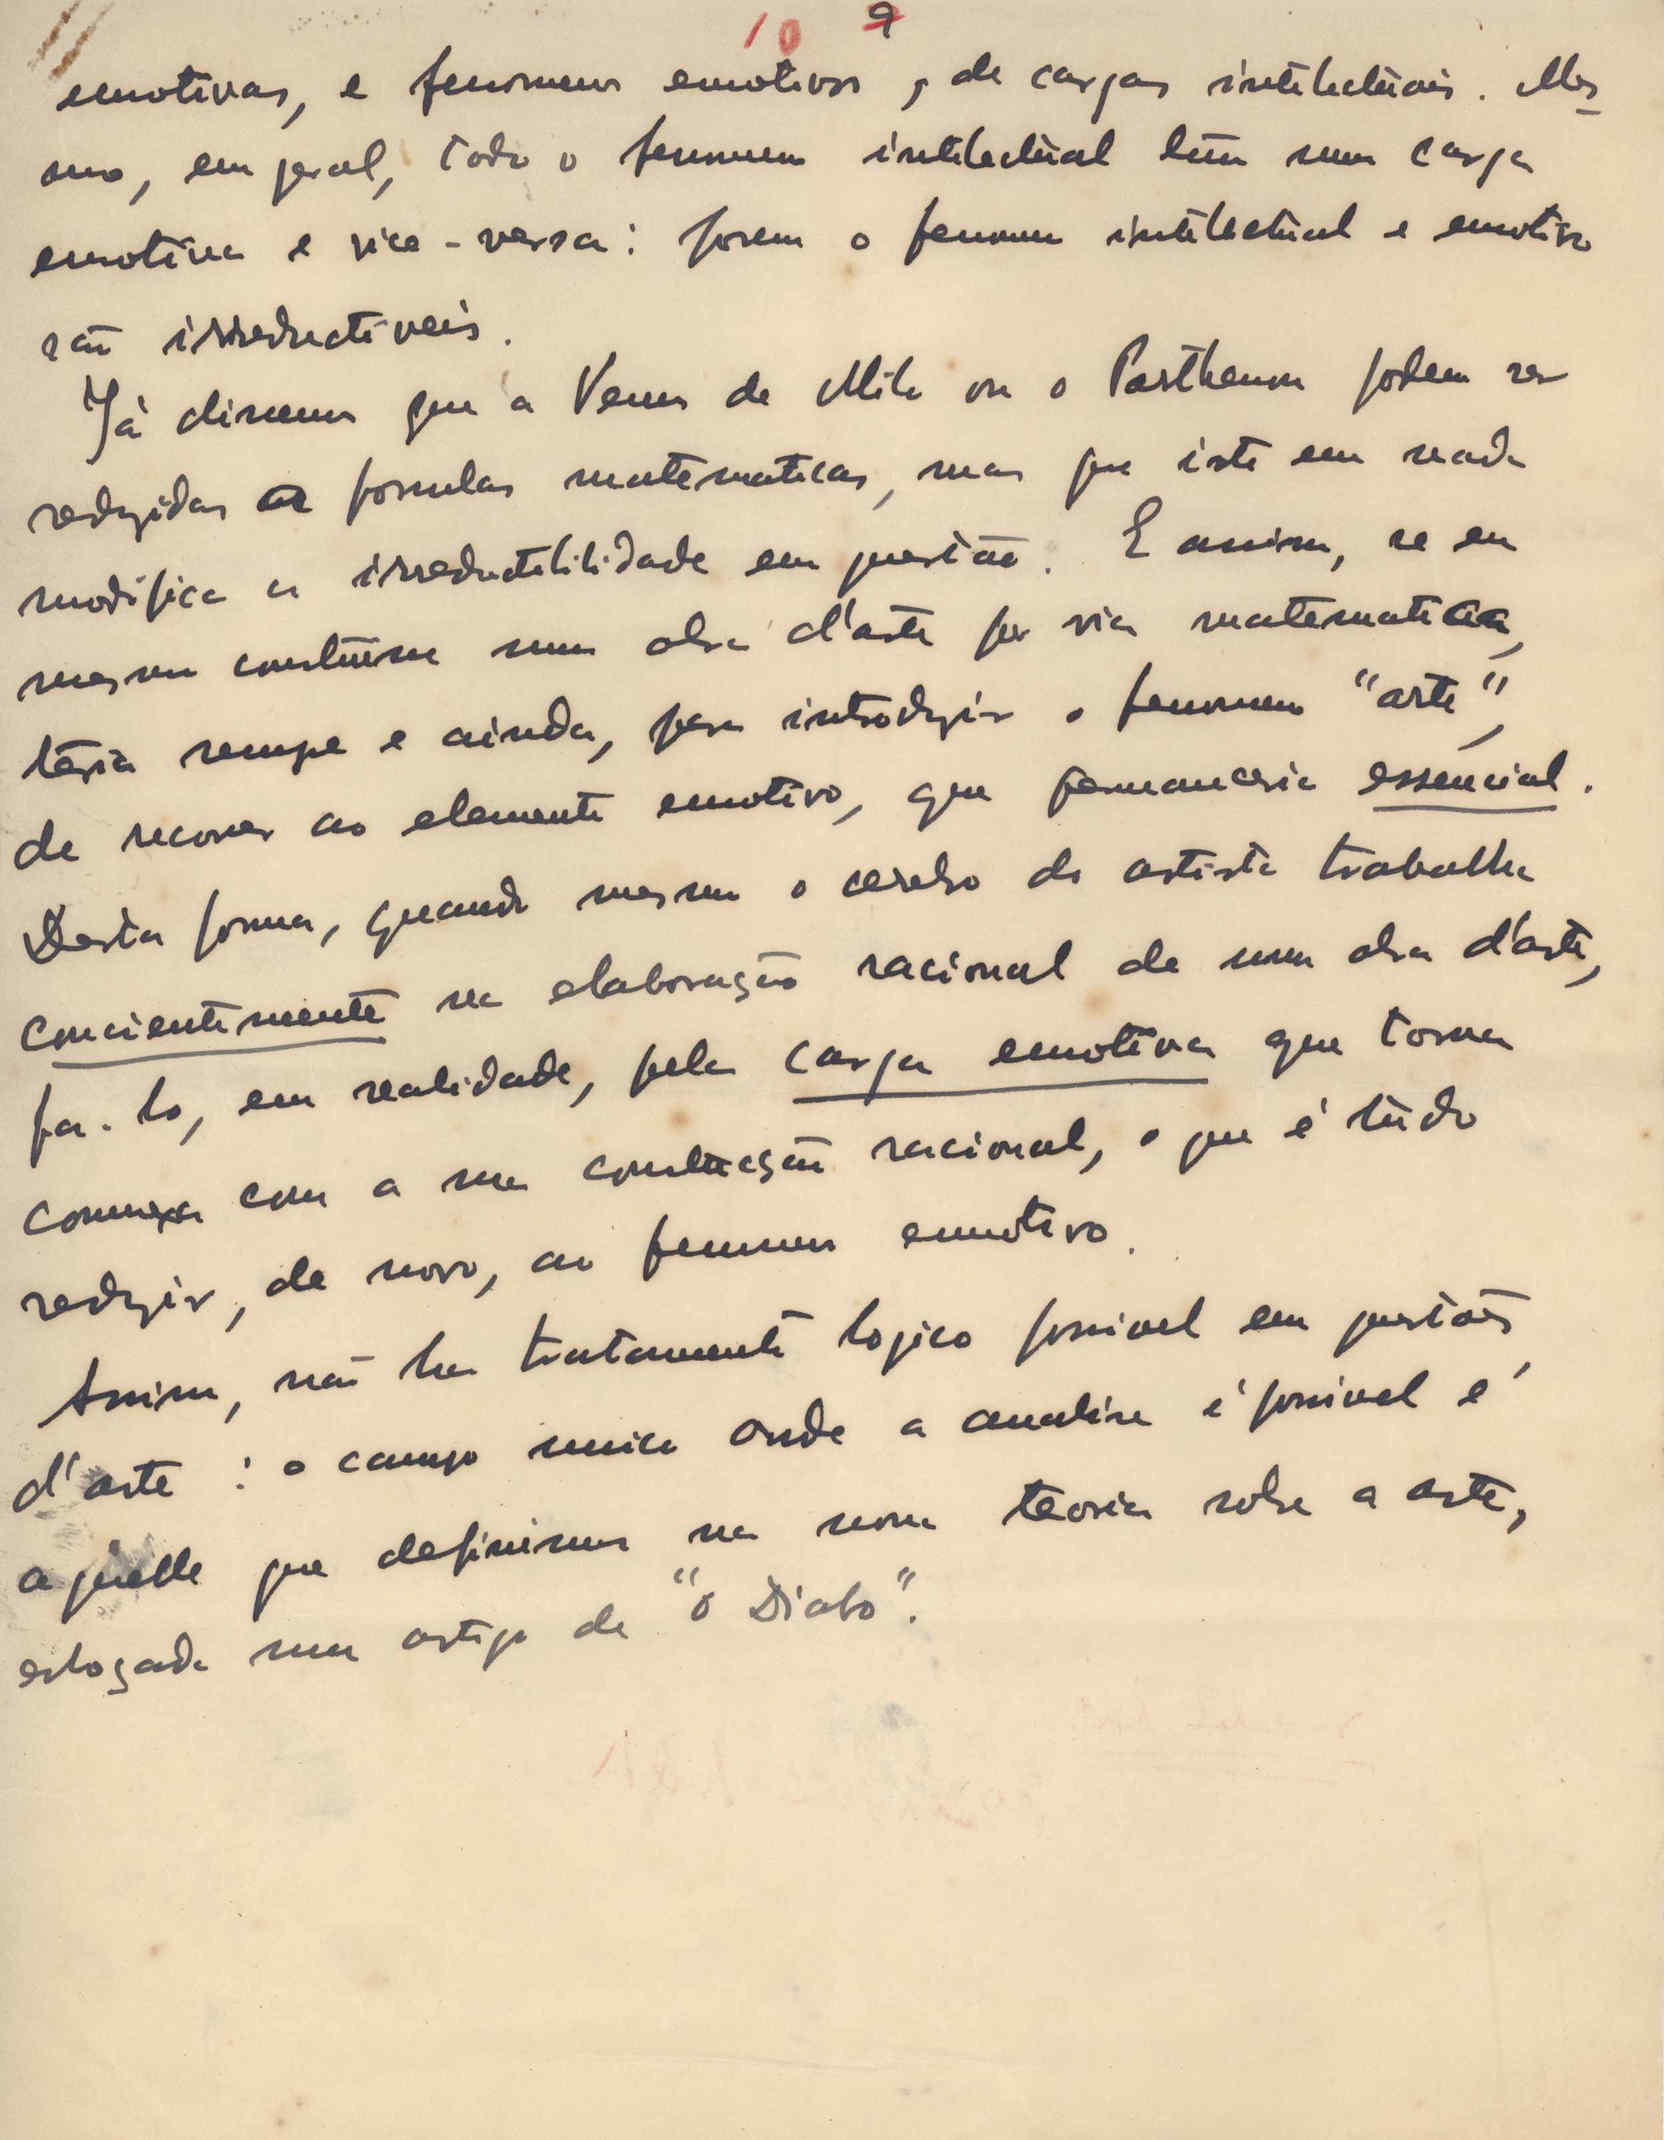 10 9
emotivas, e fenomenos emotivos, de cargas intelectuais. Mes
mo, em geral, todo o fenomeno intelectual tem uma carga
emotiva e vice-versa: porem o fenomeno intelectual e emotivo
são irreductiveis.
Já dissemos que a Venus de Milo ou o Parthenon podem ser
redusidas a formulas matematicas, mas que isto em nada
modifica a irreductibilidade em questão. E assim, se eu
mesmo construisse uma obra d'arte por via matematica,
teria sempre e ainda, para introdusir o fenomeno "arte",
de recorrer ao elemento emotivo, que permaneceria essencial.
Desta forma, quando mesmo o cerebro do artista trabalha
concientemente na elaboração racional de uma obra d'arte,
fa-lo, em realidade, pela carga emotiva que torna
connexa com a sua construcção racional, o que é tudo
redusir, de novo, ao fenomeno emotivo.
Assim, não ha tratamento logico possivel em questões
d'arte: o campo unico onde a analise é possivel é
aquelle que definimos na nova teoria sobre a arte,
esboçada num artigo de "O Diabo".